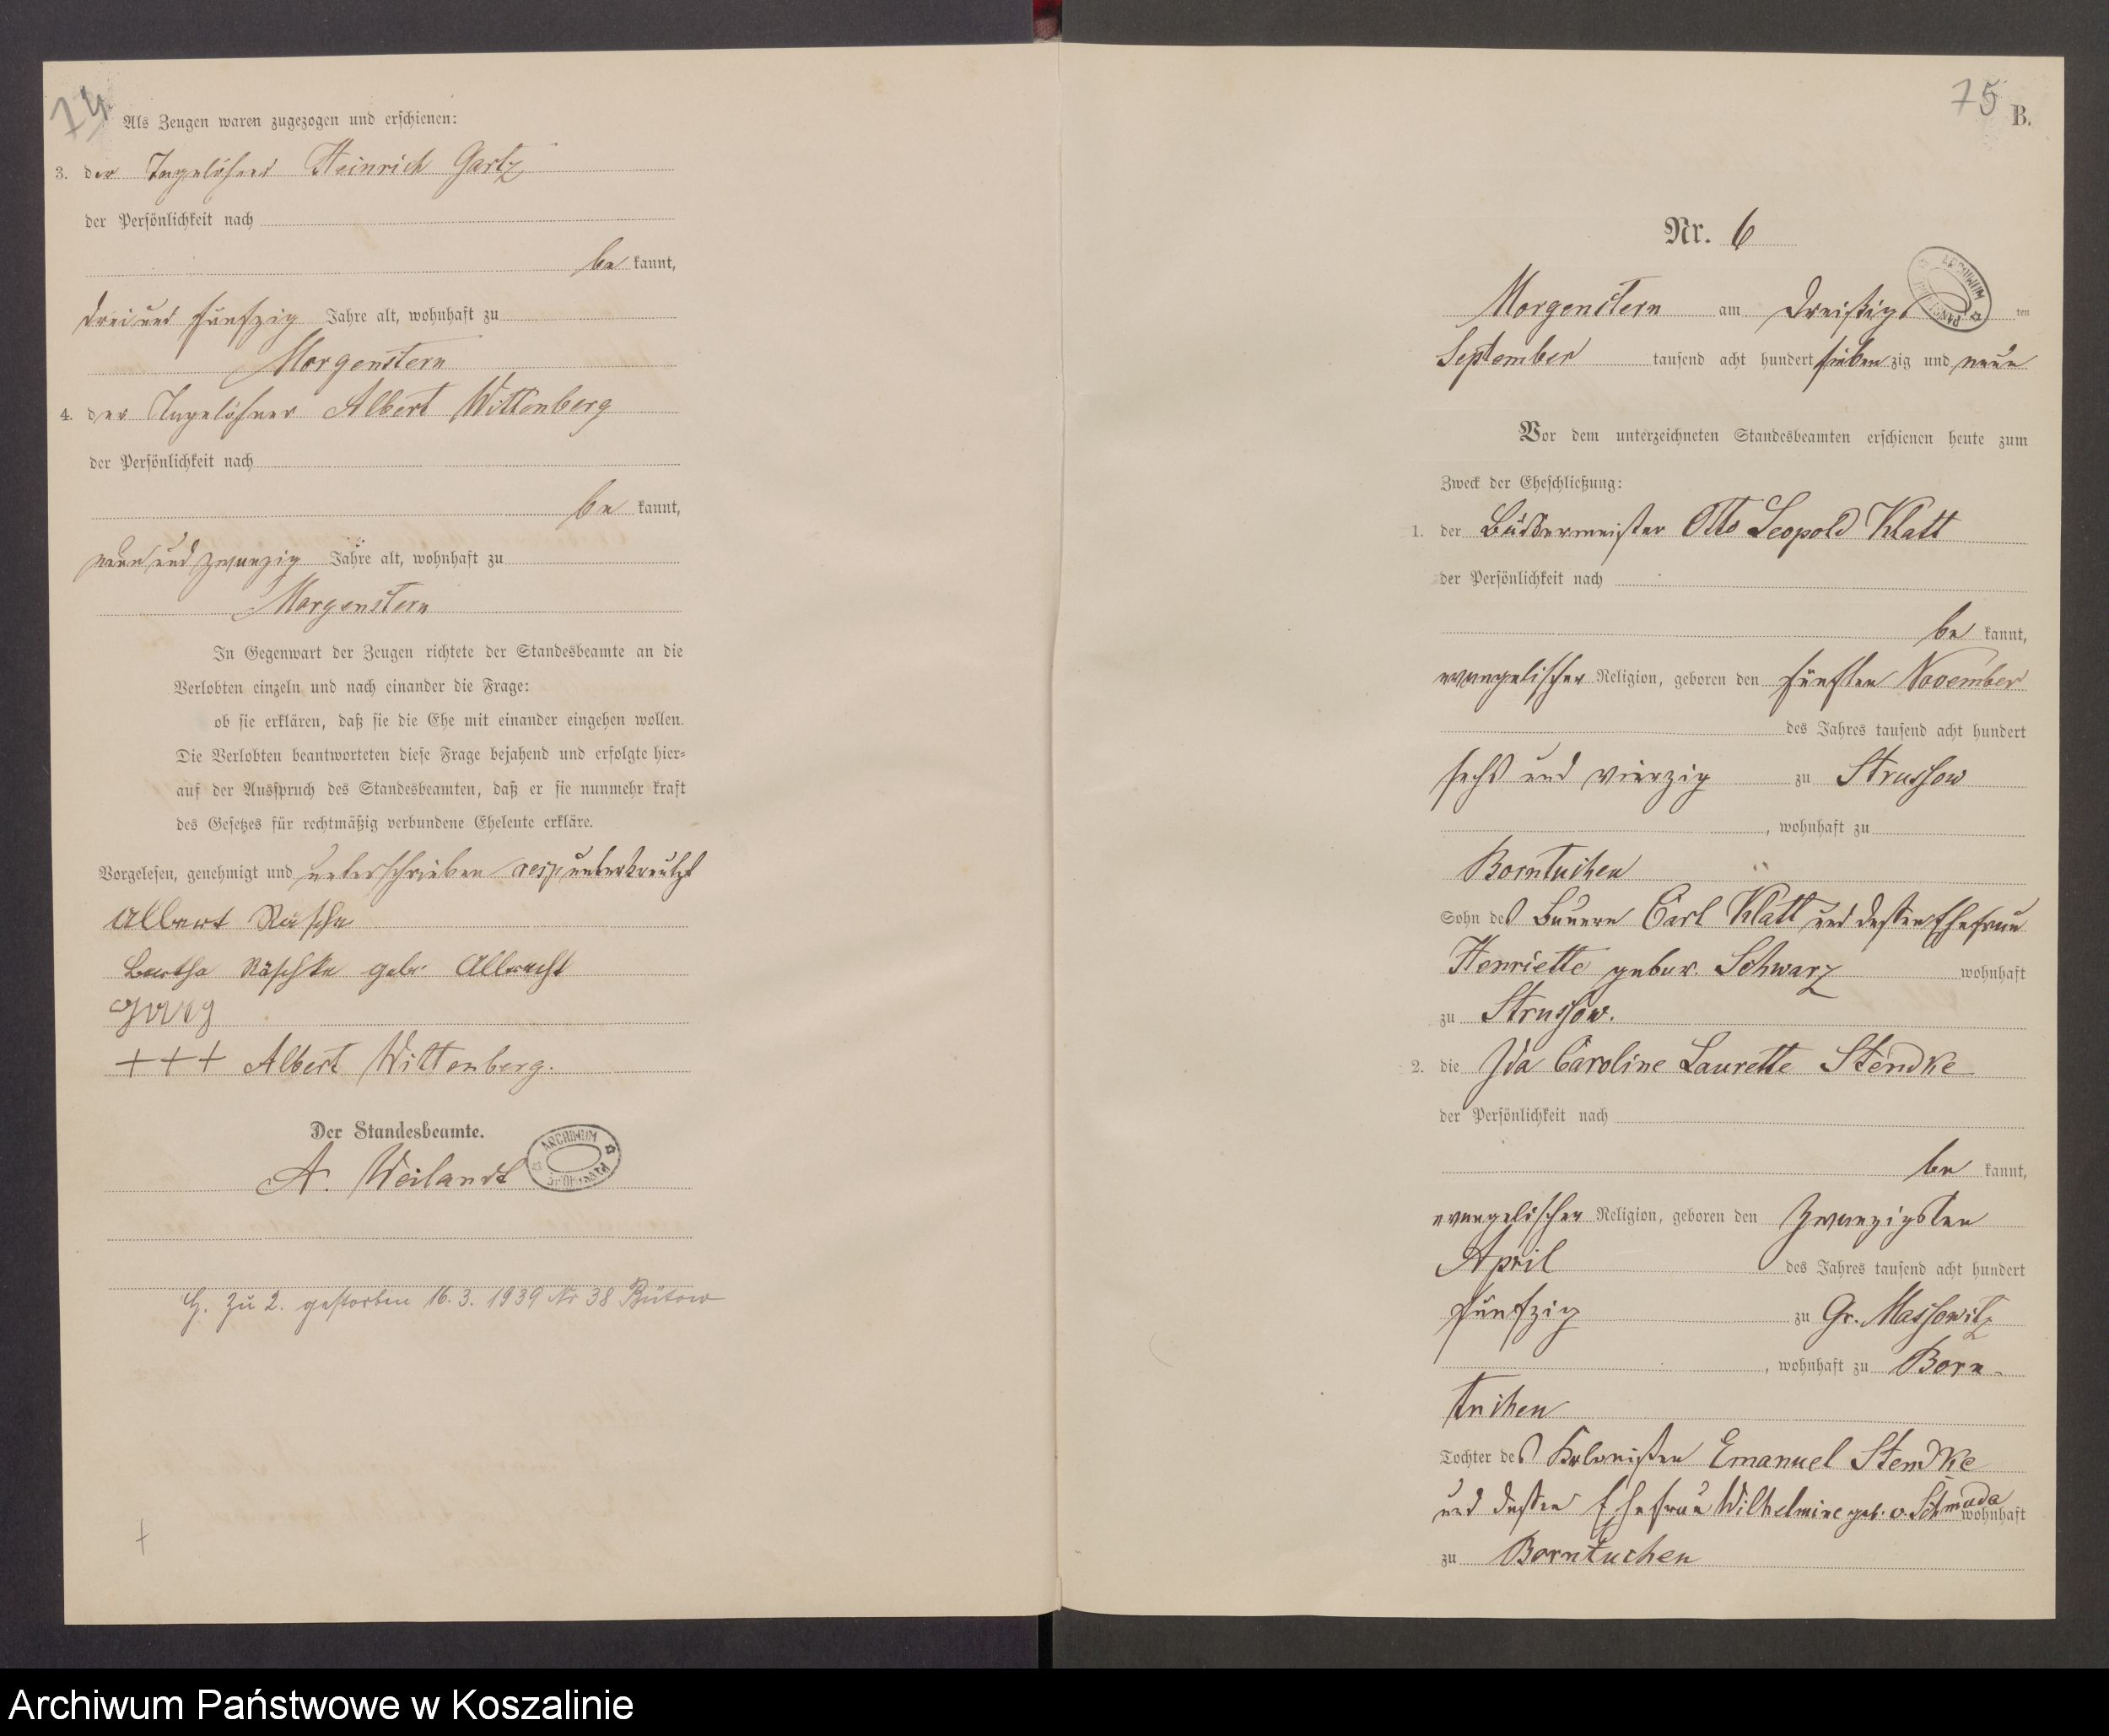 74
Als Zeugen waren zugezogen und erschienen:
3. der Tagelöhner Heinrich Gartz
der Persönlichkeit nach
be kannt,
drei und fünfzig Jahre alt, wohnhaft zu
Morgenstern
4. der Tagelöhner Albert Wittenberg
der Persönlichkeit nach
be kannt,
neun und zwanzig Jahre alt, wohnhaft zu
Morgenstern
In Gegenwart der Zeugen richtete der Standesbeamte an die
Verlobten einzeln und nach einander die Frage:
ob sie erklären, daß sie die Ehe mit einander eingehen wollen.
Die Verlobten beantworteten diese Frage bejahend und erfolgte hier=
auf der Ausspruch des Standesbeamten, daß er sie nunmehr kraft
des Gesetzes für rechtmäßig verbundene Eheleute erkläre.
Vorgelesen, genehmigt und unterschrieben resp unterkreutzt
Albert
Bertha Räschke geb. Albrecht
+++ Albert Wittenberg.
Der Standesbeamte.
A. Weilandt
ARCHIWUM
zu 2. gestorben 16.3.1939 Nr 38 Bütow
75
B.
Nr. 6
ARCHIWUM
Morgenstern am dreißigs ten
September tausend acht hundert sieben zig und neun
Vor dem unterzeichneten Standesbeamten erschienen heute zum
Zweck der Eheschließung:
1. der Otto Leopold Klatt
der Persönlichkeit nach
be kannt,
evangelischer Religion, geboren den fünften November
des Jahres tausend acht hundert
sechs und vierzig zu Strussow
, wohnhaft zu
Borntuchen
Sohn des Bauern Carl Klatt und dessen Ehefrau
Henriette gebor. Schwarz wohnhaft
zu Strussow.
2. die Ida Caroline Laurette Stendke
der Persönlichkeit nach
be kannt,
evangelischer Religion, geboren den zwanzigsten
April des Jahres tausend acht hundert
fünfzig zu Gr. Massowitz
, wohnhaft zu Born-
tuchen
Tochter des Kolonisten Emanuel Stendke
und dessen Ehefrau Wilhelmine geb. v. Schmuda wohnhaft
zu Borntuchen
Archiwum Państwowe w Koszalinie